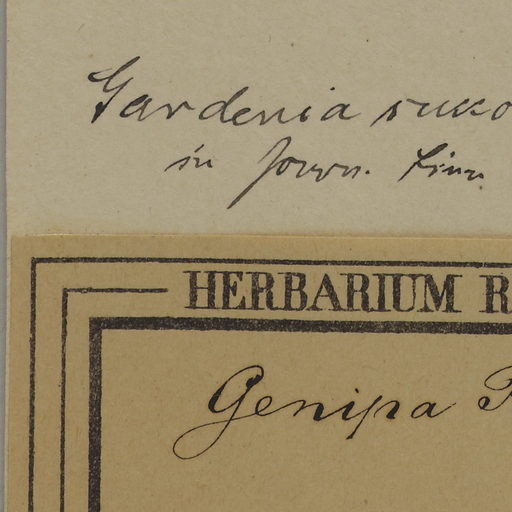 Gardenia succo
in Journ. Linn
HERBARIUM R
Genipa